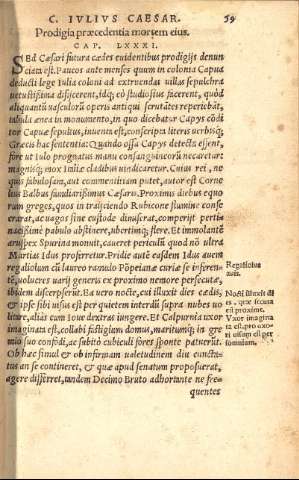 C. IVLIVS CAESAR. 59
Prodigia præcedentia mortem eius.
CAP. LXXXI.
SEd Cæsari futura cædes euidentibus prodigijs denun
ciata est. Paucos ante menses quum in colonia Capua
deducti lege Iulia coloni ad extruendas uillas sepulchra
uetustissima disijcerent, idq; eò studiosius facerent, quòd
aliquantũ uasculorũ operis antiqui scrutātes reperiebāt,
tabula ænea in monumento, in quo dicebatur Capys cõdi
tor Capuæ sepultus, inuenta est, conscripta literis uerbisq;
Græcis hac sententia: Quando ossa Capys detecta essent,
fore ut Iulo prognatus manu consanguineorũ necaretur:
magnisq; mox Italiæ cladibus uindicaretur. Cuius rei, ne
quis fabulosam, aut commentitiam putet, autor est Corne
lius Balbus familiarissimus Cæsaris. Proximis diebus equo
rum greges, quos in traijciendo Rubicone flumine conse
crarat, ac uagos sine custode dimiserat, comperijt pertina
cissimè pabulo abstinere, ubertimq; flere. Et immolantē
aruspex Spurina monuit, caueret periculũ quod nõ ultra
Martias Idus proferretur. Pridie autē easdem Idus auem
regaliolum cũ laureo ramulo Põpeianæ curiæ se inferen-
tē, uolucres uarij generis ex proximo nemore persecutæ,
ibidem discerpserũt. Ea uero nocte, cui illuxit dies cædis,
& ipse sibi uisus est per quietem interdũ supra nubes uo
litare, aliàs cum Ioue dextras iungere. Et Calpurnia uxor
imaginata est, collabi fastigium domus, maritumq; in gre
mio suo confodi, ac subitò cubiculi fores spontè patuerũt.
Ob hæc simul & ob infirmam ualetudinem diu cuncta-
tus an se contineret, & quæ apud senatum proposuerat,
agere differret, tandem Decimo Bruto adhortante ne fre-
quentes
Regaliolus
auis.
Nocti illuxit di
es, quæ secuta
est proxime.
Vxor imagina
ta est, pro uxo-
ri uisum est per
somnium.